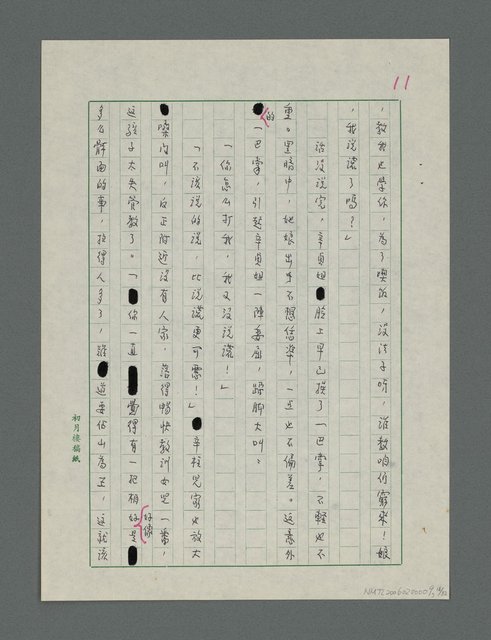 11
，教我也學你，為了喫飯，沒法子呀，誰教咱們窮來！娘
，我說謊了嗎？」
話沒說完，辛貞姐臉上早已挨了一巴掌，不輕也不
重。黑暗中，她娘出手不想估準，一點也不偏差。這意外
的一巴掌，引起辛貞姐一陣委屈，蹂脚大叫：
「你怎么打我，我又沒說謊！」
「不該說的說，比說謊更可惡！」辛拴兒家也放大
嗓門叫，反正附近沒有人家，落得暢快教訓女兒一番，
這孩子太失管教了。「你一直覺得有一把相好是
好像
多么體面的事，拉得人多了，雖道要佔山為王，這就該
初月樓稿紙
NMTL20060200009